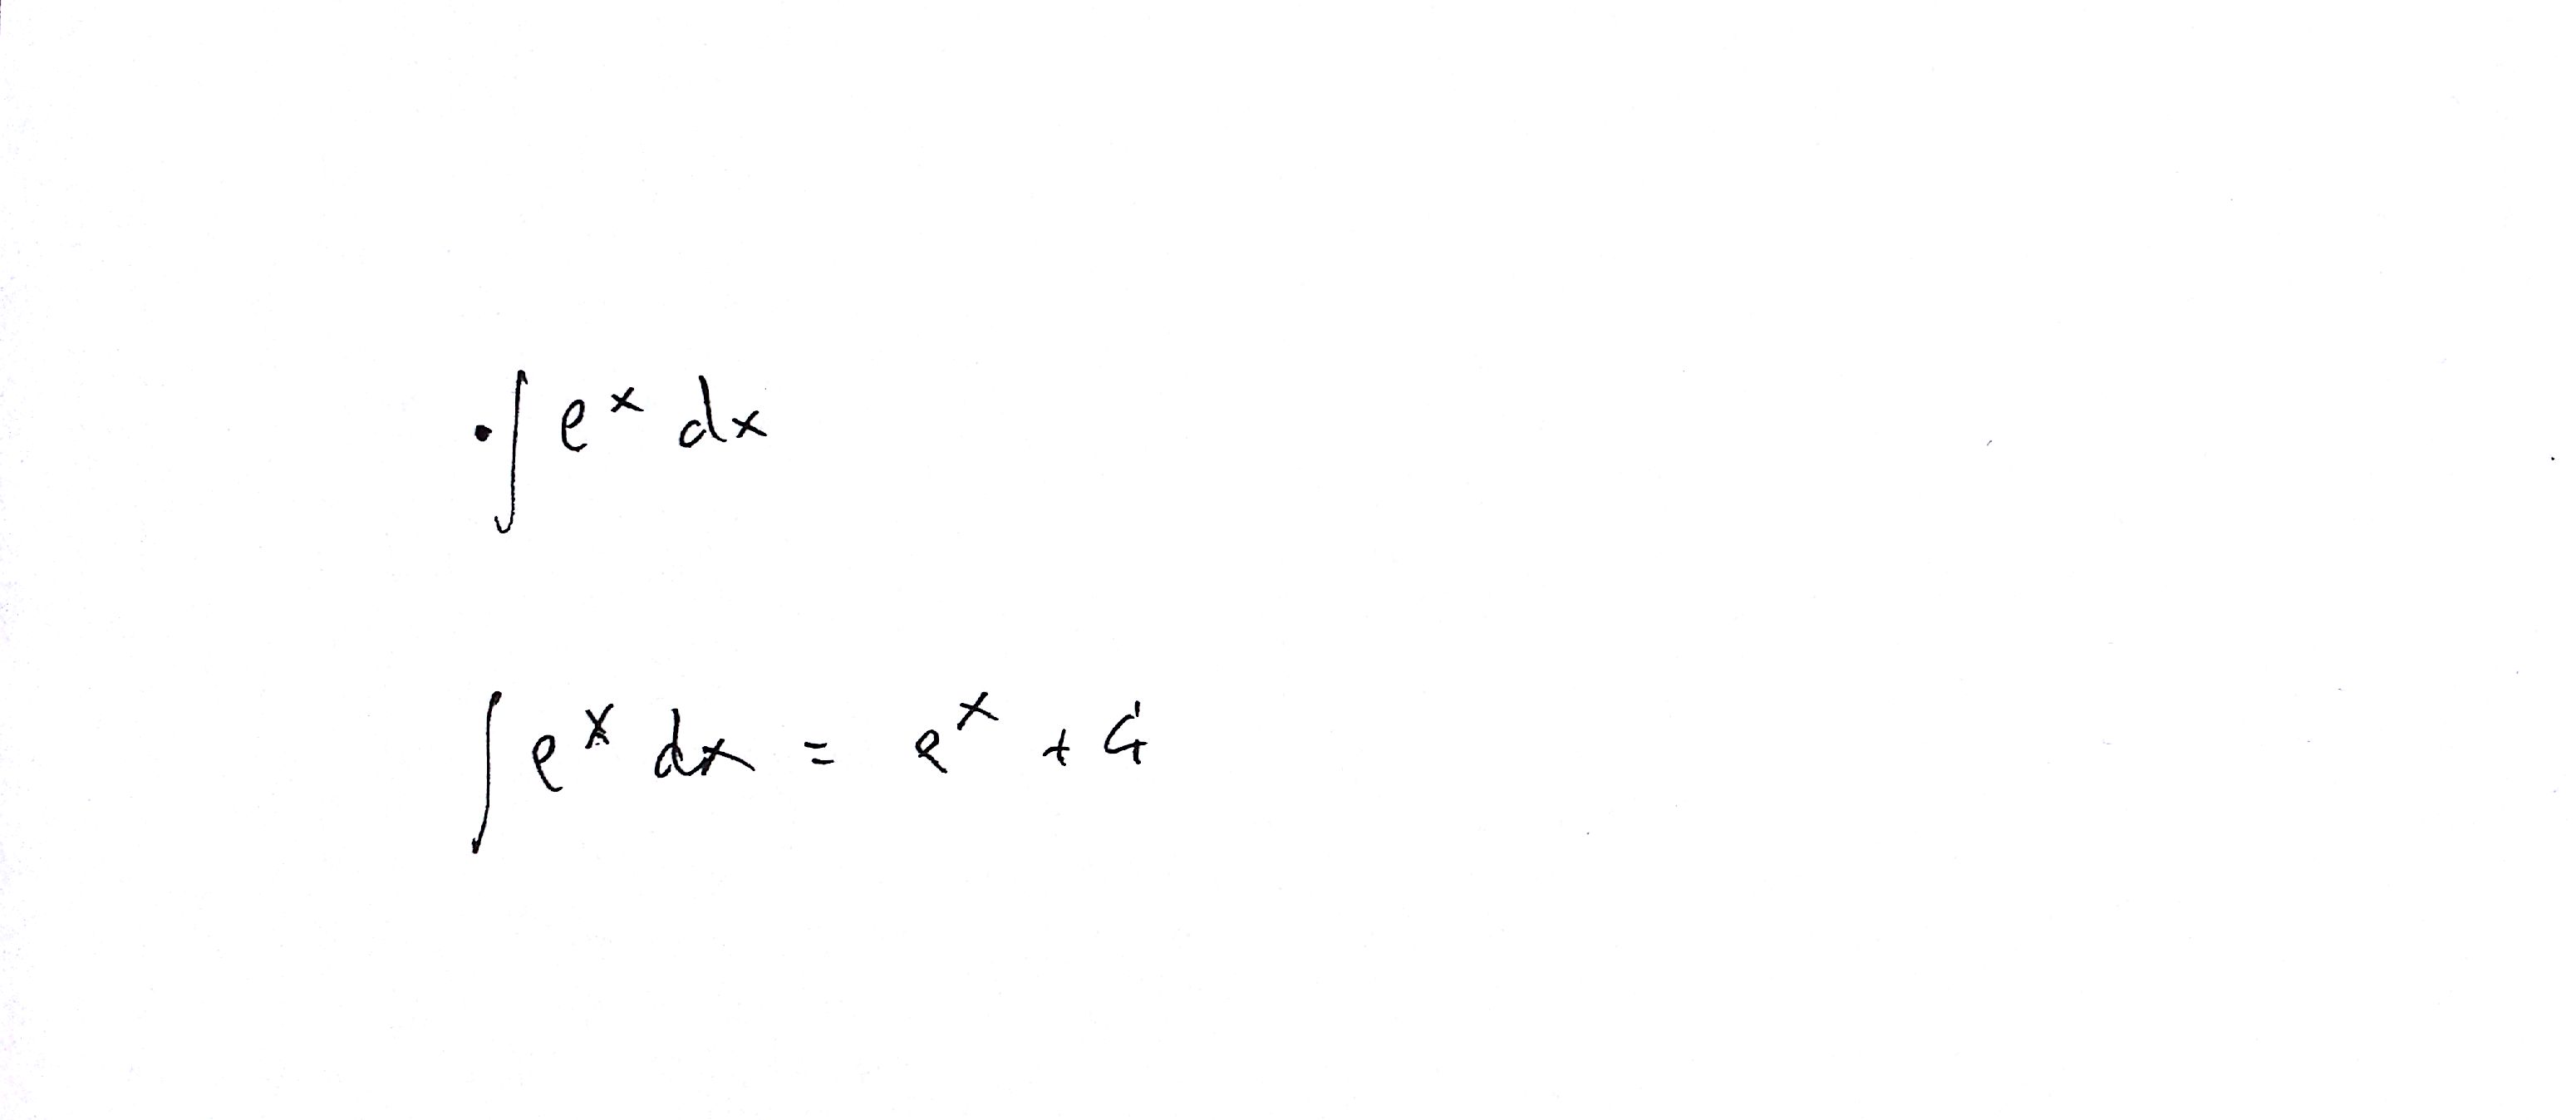 • ∫ e^x dx
∫ e^x dx = e^x + G